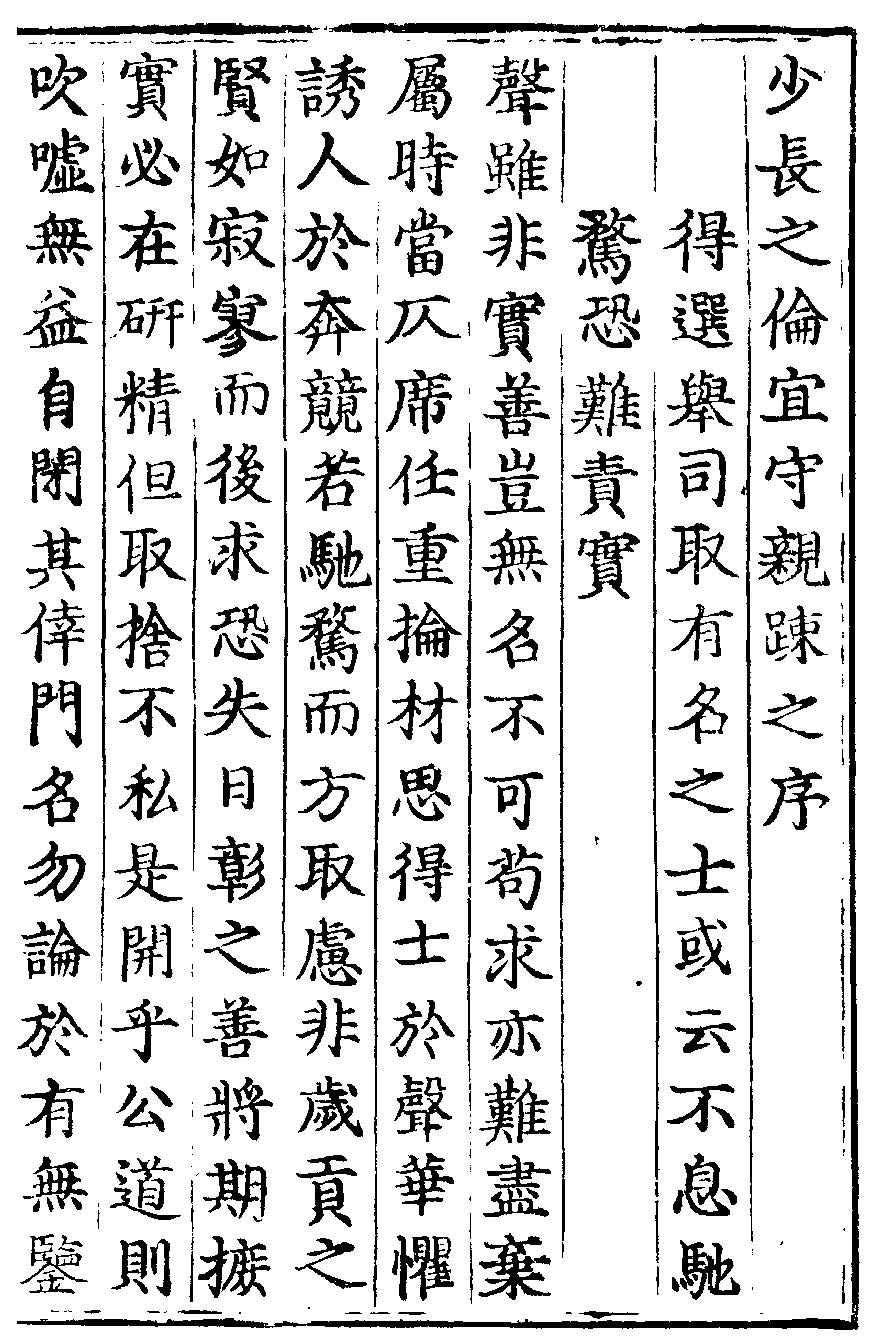 少長之倫宜守親踈之序
得選舉司取有名之士或云不息馳
騖恐難責實
聲雖非實善豈無名不可苟求亦難盡棄
屬時當仄席任重掄材思得士於聲華懼
誘人於奔競若馳騖而方取慮非歲貢之
賢如寂寥而後求恐失日彰之善將期摭
實必在硏精但取捨不私是開乎公道則
吹噓無益自閉其倖門名勿論於有無鑒